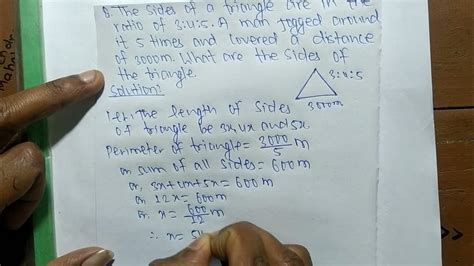 8. The sides of a triangle are in the
ratio of 3:4:5. A man jogged around
it 5 times and covered a distance
of 3000m. What are the sides of
the triangle.
Solution:
3:4:5
3000m
Let: The length of sides
of triangle be 3x, 4x and 5x
Perimeter of triangle = 3000/5 m
or sum of all sides = 600m
or, 3x+4x+5x = 600m
or 12x = 600m
or. x = 600/12 m
∴ x = 5